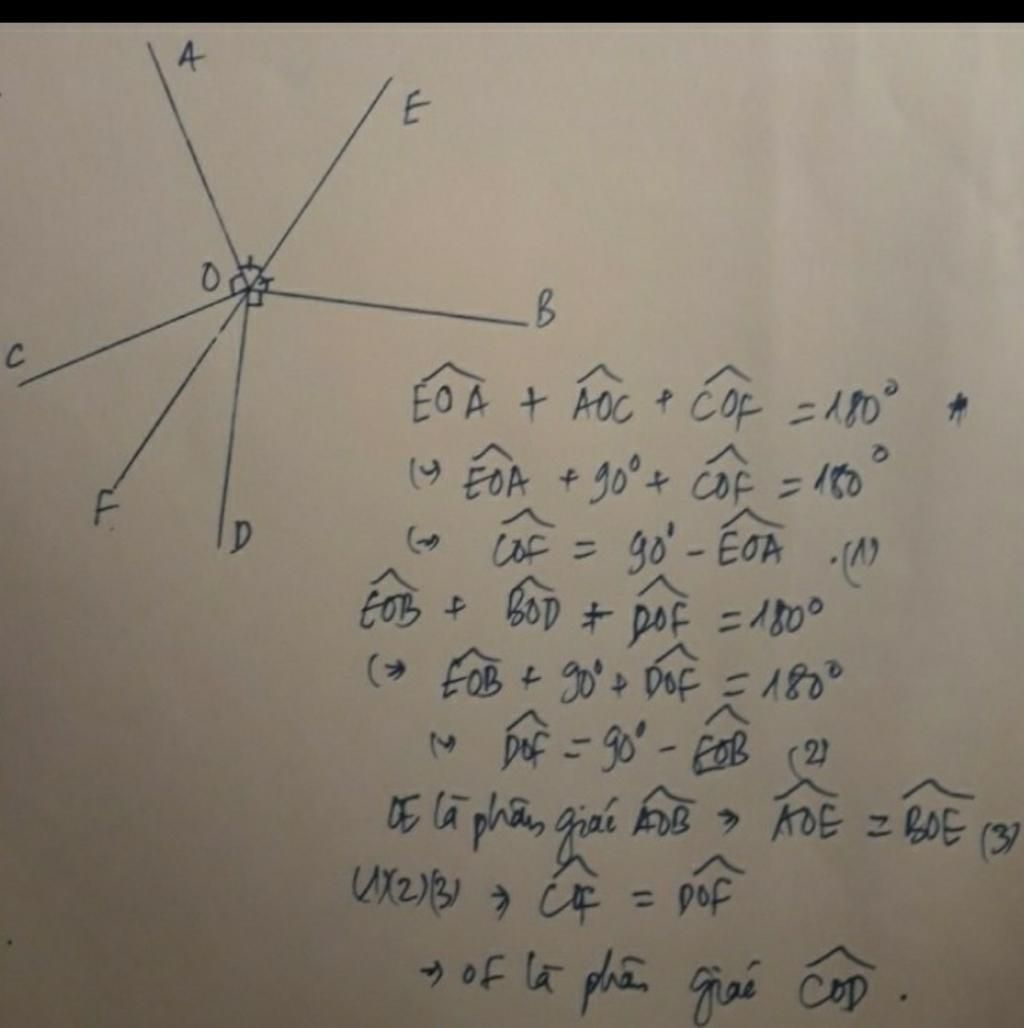 A
E
O
B
C
F
D
$\widehat{EOA} + \widehat{AOC} + \widehat{COF} = 180^0$ *
(→ $\widehat{EOA} + 90^0 + \widehat{COF} = 180^0$
(→ $\widehat{COF} = 90^0 - \widehat{EOA}$ .(1)
$\widehat{EOB} + \widehat{BOD} + \widehat{DOF} = 180^0$
(→ $\widehat{EOB} + 90^0 + \widehat{DOF} = 180^0$
(→ $\widehat{DOF} = 90^0 - \widehat{EOB}$ (2)
OE là phân giác $\widehat{AOB}$ → $\widehat{AOE} = \widehat{BOE}$ (3)
(1)(2)(3) → $\widehat{COF} = \widehat{DOF}$
→ OF là phân giác $\widehat{COD}$.